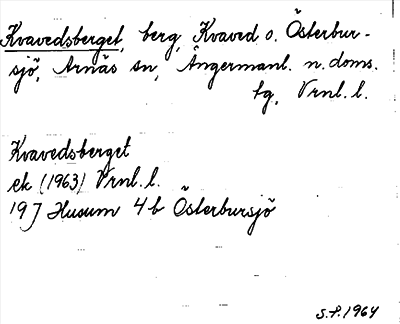 Kvavedsberget, berg, Kvaved o. Österbur-
sjö, Arnäs sn, Ångermanl. n. doms.
tg, Vrnl. l.
Kvavedsberget
ek (1963) Vrnl. l.
19J Husum 4b Österbursjö
S.P. 1964